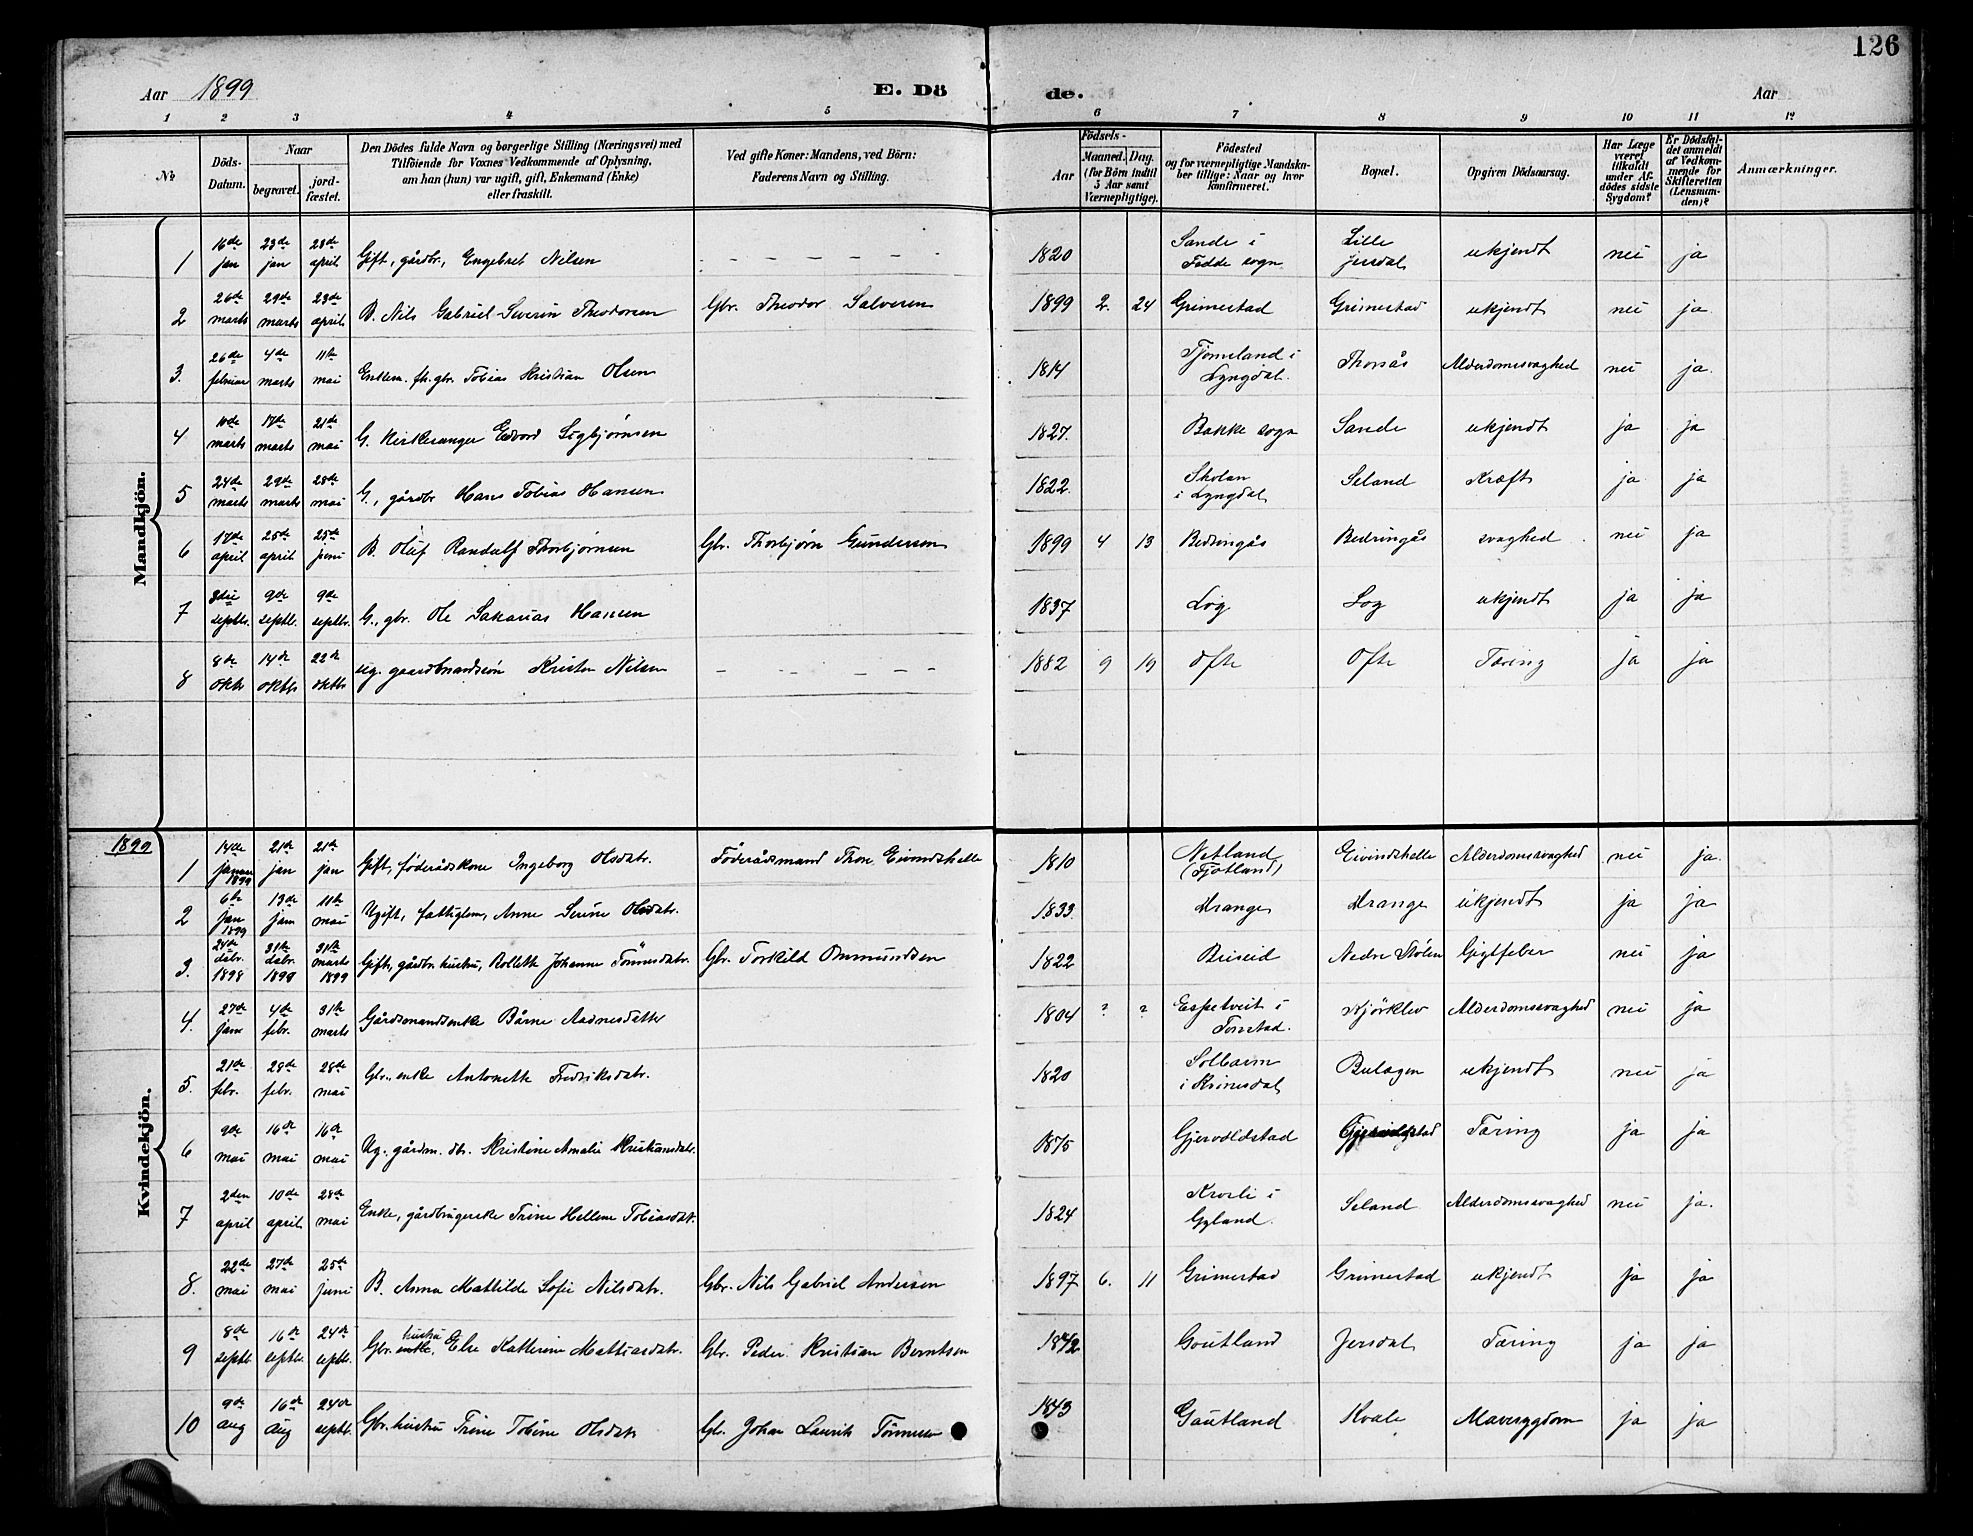 126
Aar 1899 E. Dö de. Aar
1 2 3 4 5 6 7 8 9 10 11 12
№ Döds-Datum. Naar begravet. jord-fæstet. Den Dödes fulde Navn og borgerlige Stilling (Næringsvei) med Tilföiende for Voxnes Vedkommende af Oplysning, om han (hun) var ugift, gift, Enkemand (Enke) eller fraskilt. Ved gifte Koner: Mandens, ved Börn: Faderens Navn og Stilling. Födsels- Aar Maaned. Dag. (for Börn indtil 5 Aar samt Værnepligtige). Födested og for værnepligtige Mandskaber tillige: Naar og hvor konfirmeret. Bopæl. Opgiven Dödsaarsag. Har Læge været tilkaldt under Afdödes sidste Sygdom? Er Dödsfaldet anmeldt af Vedkommende for Skifteretten (Lensmanden)? Anmærkninger.
Mandkjön.
1 16de jan 23de jan 23de april Gift, gårdbr., Engebret Nilsen 1820 Sande i Fedde sogn Lille Jersdal ukjendt nei ja
2 26de marts 29de marts 23de april B. Nils Gabriel Severin Theodorsen Gbr. Theodor Salvesen 1899 2. 24 Grimestad Grimestad ukjendt nei ja
3. 26de februar 4de marts 11te mai Enkem. fh. gbr. Tobias Kristian Olsen 1814 Tjomsland i Lyngdal. Thorsås Alderdomssvaghed nei ja.
4 10de marts 17de marts 21de mai G. Kirkesanger Edvord Sigbjørnsen 1827. Bakke sogn Sande ukjendt ja ja
5 24de marts 29de marts 28de mai G., gårdbr Hans Tobias Hansen 1822. Skolan i Lyngdal Seland Kræft ja ja
6 17de april 25de april 25de juni B. Oluf Randulf Thorbjørnsen Gbr. Thorbjørn Gundersen 1899 4 13 Bedringås Bedringås svaghed nei ja
7 3die septbr. 9de septbr. 9de septbr. G., gbr. Ole Sakarias Hansen 1837 Log Log ukjendt ja ja
8 8de oktb 14de oktbr 22de oktbr ug. gaardmandssøn Krister Nilsen 1882 9 19 Ofte Ofte Tæring ja ja
1899
Kvindekjön.
1 14de januar 1899 21de jan 21de jan Gift, føderådskone Ingeborg Olsdatr. Föderådsmand Thore Eivindshelle 1810 Netland (Fjotland) Eivindshelle Alderdomssvaghed nei ja.
2 6te jan 1899 13de jan 11te mai Ugift, fattiglem, Anne Serine Olsdatr. 1833. Mrange Mrange ukjendt ja ja
3. 24de dsbr. 1898 31te dsbr. 1898 31te marts 1899 Gift, gårdbr. hustru, Bollette Johanne Tönnesdatr. Gbr. Torkild Ommundsen 1822 Briseid Nedre Stølen Gigtfeber nei ja
4. 27de jan 4de febr. 31te marts Gårdmandsenke Bårne Aadnesdatter 1804 ? ? Espetveit i Tonstad. Kjörklev Alderdomssvaghed nei ja
5. 21de febr. 28de febr. 28de mai Gbr. enke Antonette Fredriksdatr. 1820 Solbærn i Kvinesdal Bulægen ukjendt nei ja
6 9de mai 16de mai 16de mai Ug. gårdm. dtr. Kristine Amalie Kristiansdatr. 1875 Gjervoldstad Gjervoldstad Tæring ja ja
7 2den april 10de april 28de mai Enke, gårdbrugerske Trine Hellene Tobiasdatr. 1824 Krosli i Gyland. Seland Alderdomssvaghed nei ja.
8. 22de mai 27de mai 25de juni B. Anna Mathilde Sofie Nilsdatr. Gbr. Nils Gabriel Andersen 1897 6. 11 Grimestad Grimestad ukjendt ja ja
9 8de septbr. 16de septbr. 24de septbr. Gbr. hustru enke, Else Katterine Mathiasdatr. Gbr. Peder Kristian Berntsen 1842 Goutland Jersdal Tæring ja ja
10 9de aug 16de aug 24de septbr. Gbr. hustru Trine Tobine Olsdatr Gbr. Johan Laurits Tønnessen 1843 Gautland Kvale Mavesygdom ja ja